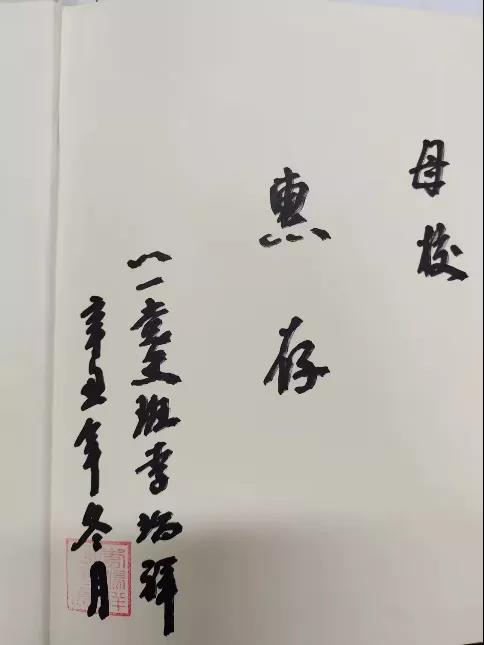 母校
惠存
八一文班李祥
辛丑年冬月